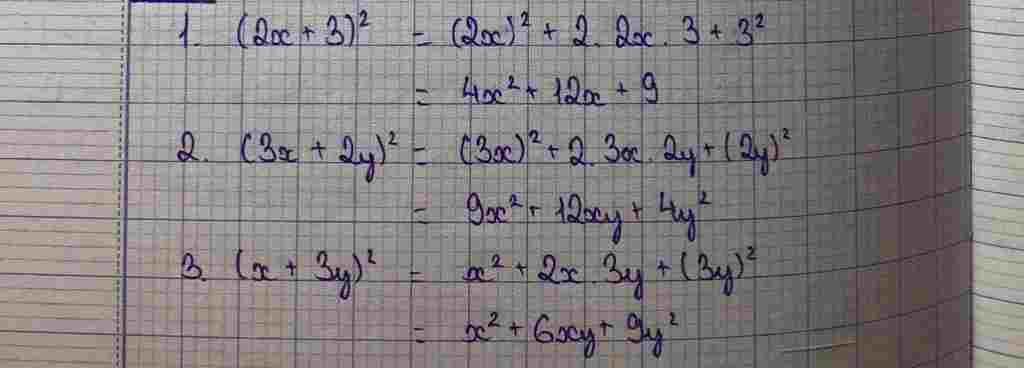 1. (2x + 3)² = (2x)² + 2. 2x. 3 + 3²
= 4x² + 12x + 9
2. (3x + 2y)² = (3x)² + 2. 3x. 2y + (2y)²
= 9x² + 12xy + 4y²
3. (x + 3y)² = x² + 2x. 3y + (3y)²
= x² + 6xy + 9y²